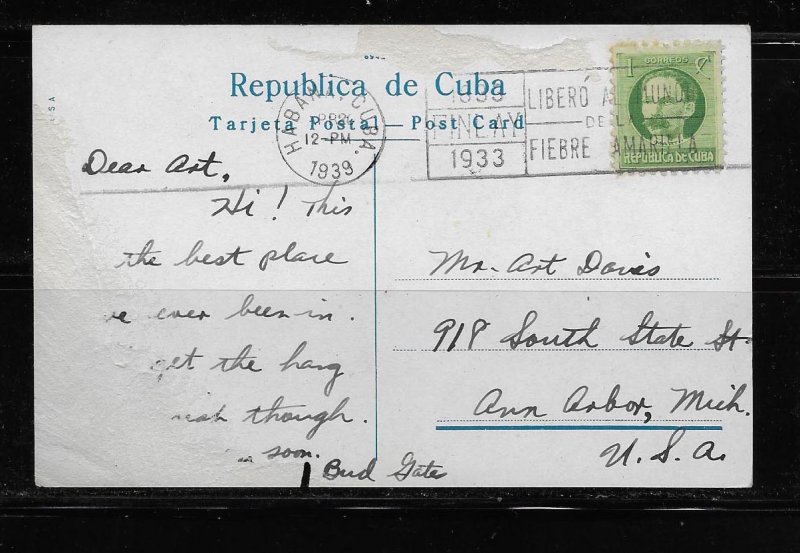 Republica de Cuba
Tarjeta Postal — Post Card
HABANA, CUBA.
12-PM
1939
FINLAY
1933
LIBERÓ A
DE L
FIEBRE AMARILLA
1 ¢
CORREOS
REPUBLICA DE CUBA
Dear Art,
Hi! This
the best place
ve ever been in.
get the hang
ish though.
soon.
Bud Gate
Mr. Art Davis
918 South State St.
Ann Arbor, Mich.
U.S.A.